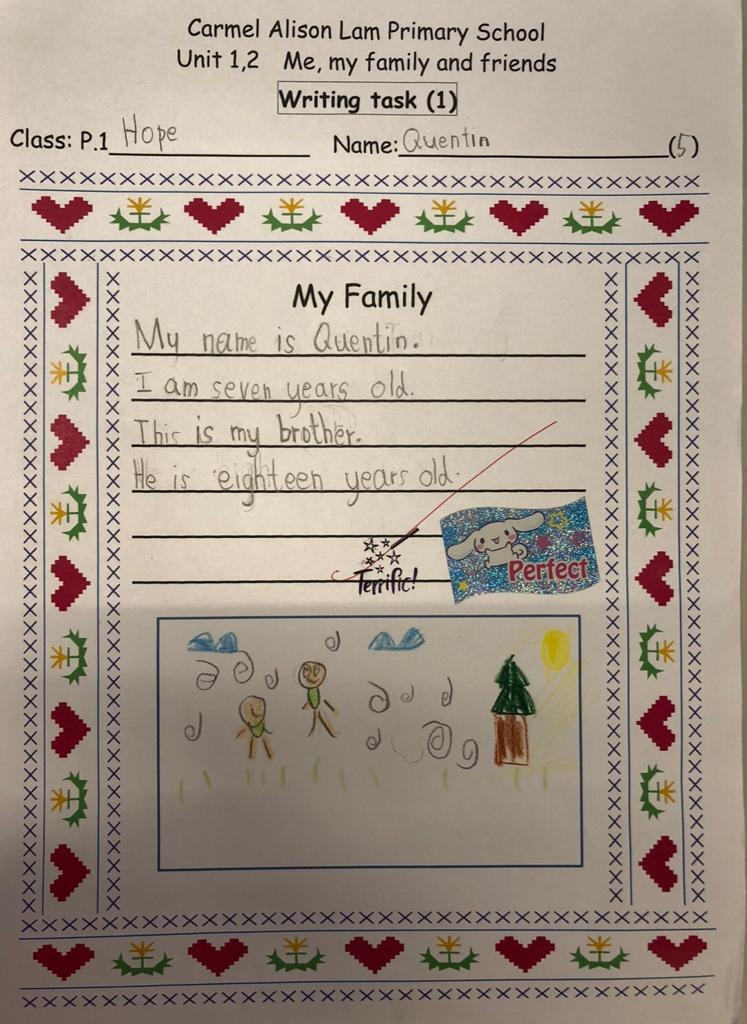 Carmel Alison Lam Primary School
Unit 1,2 Me, my family and friends
Writing task (1)
Class: P.1 Hope Name: Quentin (5)
My Family
My name is Quentin.
I am seven years old.
This is my brother.
He is eighteen years old.
Terrific!
Perfect